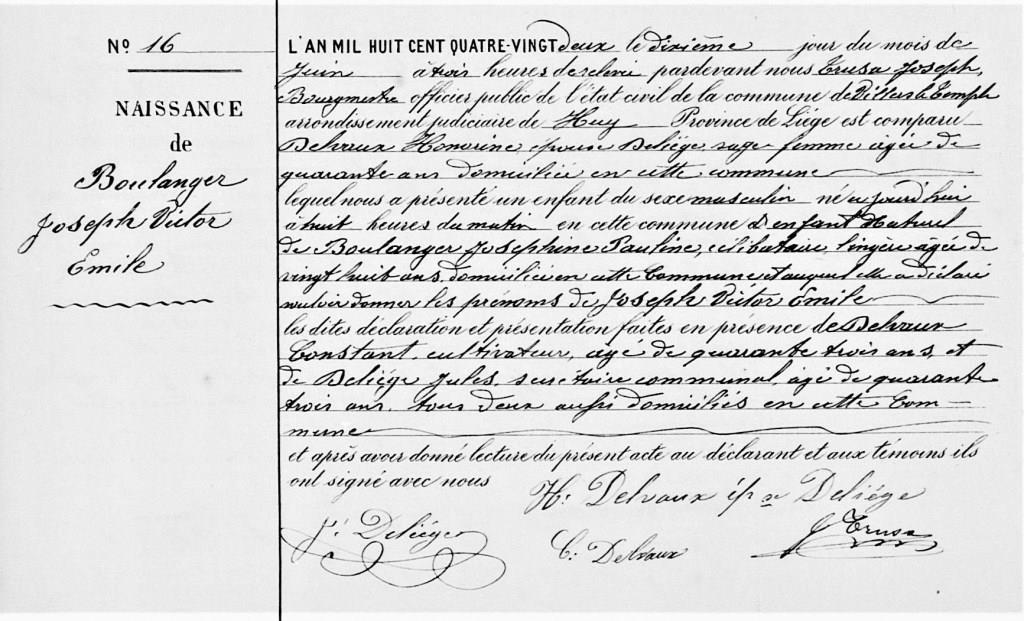 Nº 16
NAISSANCE
de
Boulanger
Joseph Victor
Emile
L'AN MIL HUIT CENT QUATRE-VINGT deux le dixième jour du mois de
Juin à trois heures de relevée pardevant nous Trusa Joseph,
Bourgmestre officier public de l'état civil de la commune de Villers le Temple
arrondissement judiciaire de Huy Province de Liège est comparu
Delvaux Honorine, épouse Deliége sage-femme âgée de
quarante ans domiciliée en cette commune
lequel nous a présenté un enfant du sexe masculin né aujourd'hui
à huit heures du matin en cette commune & enfant Naturel
de Boulanger Josephine Pauline, célibataire, lingère âgée de
vingt huit ans, domiciliée en cette Commune et auquel elle a déclaré
vouloir donner les prénoms de Joseph Victor Emile
les dites déclaration et présentation faites en présence de Delvaux
Constant, cultivateur, âgé de quarante trois ans, et
de Deliége Jules, secrétaire communal, âgé de quarante
trois ans, tous deux aussi domiciliés en cette Com-
mune
et après avoir donné lecture du présent acte au déclarant et aux témoins ils
ont signé avec nous
H. Delvaux épse Deliége
J. Deliége
C. Delvaux
J Trusa